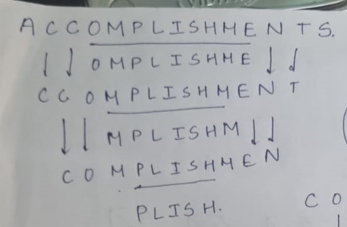 ACCOMPLISHMENTS.
OMPLISHME
CCOMPLISHMENT
MPLISHM
COMPLISHMEN
PLISH.
CO